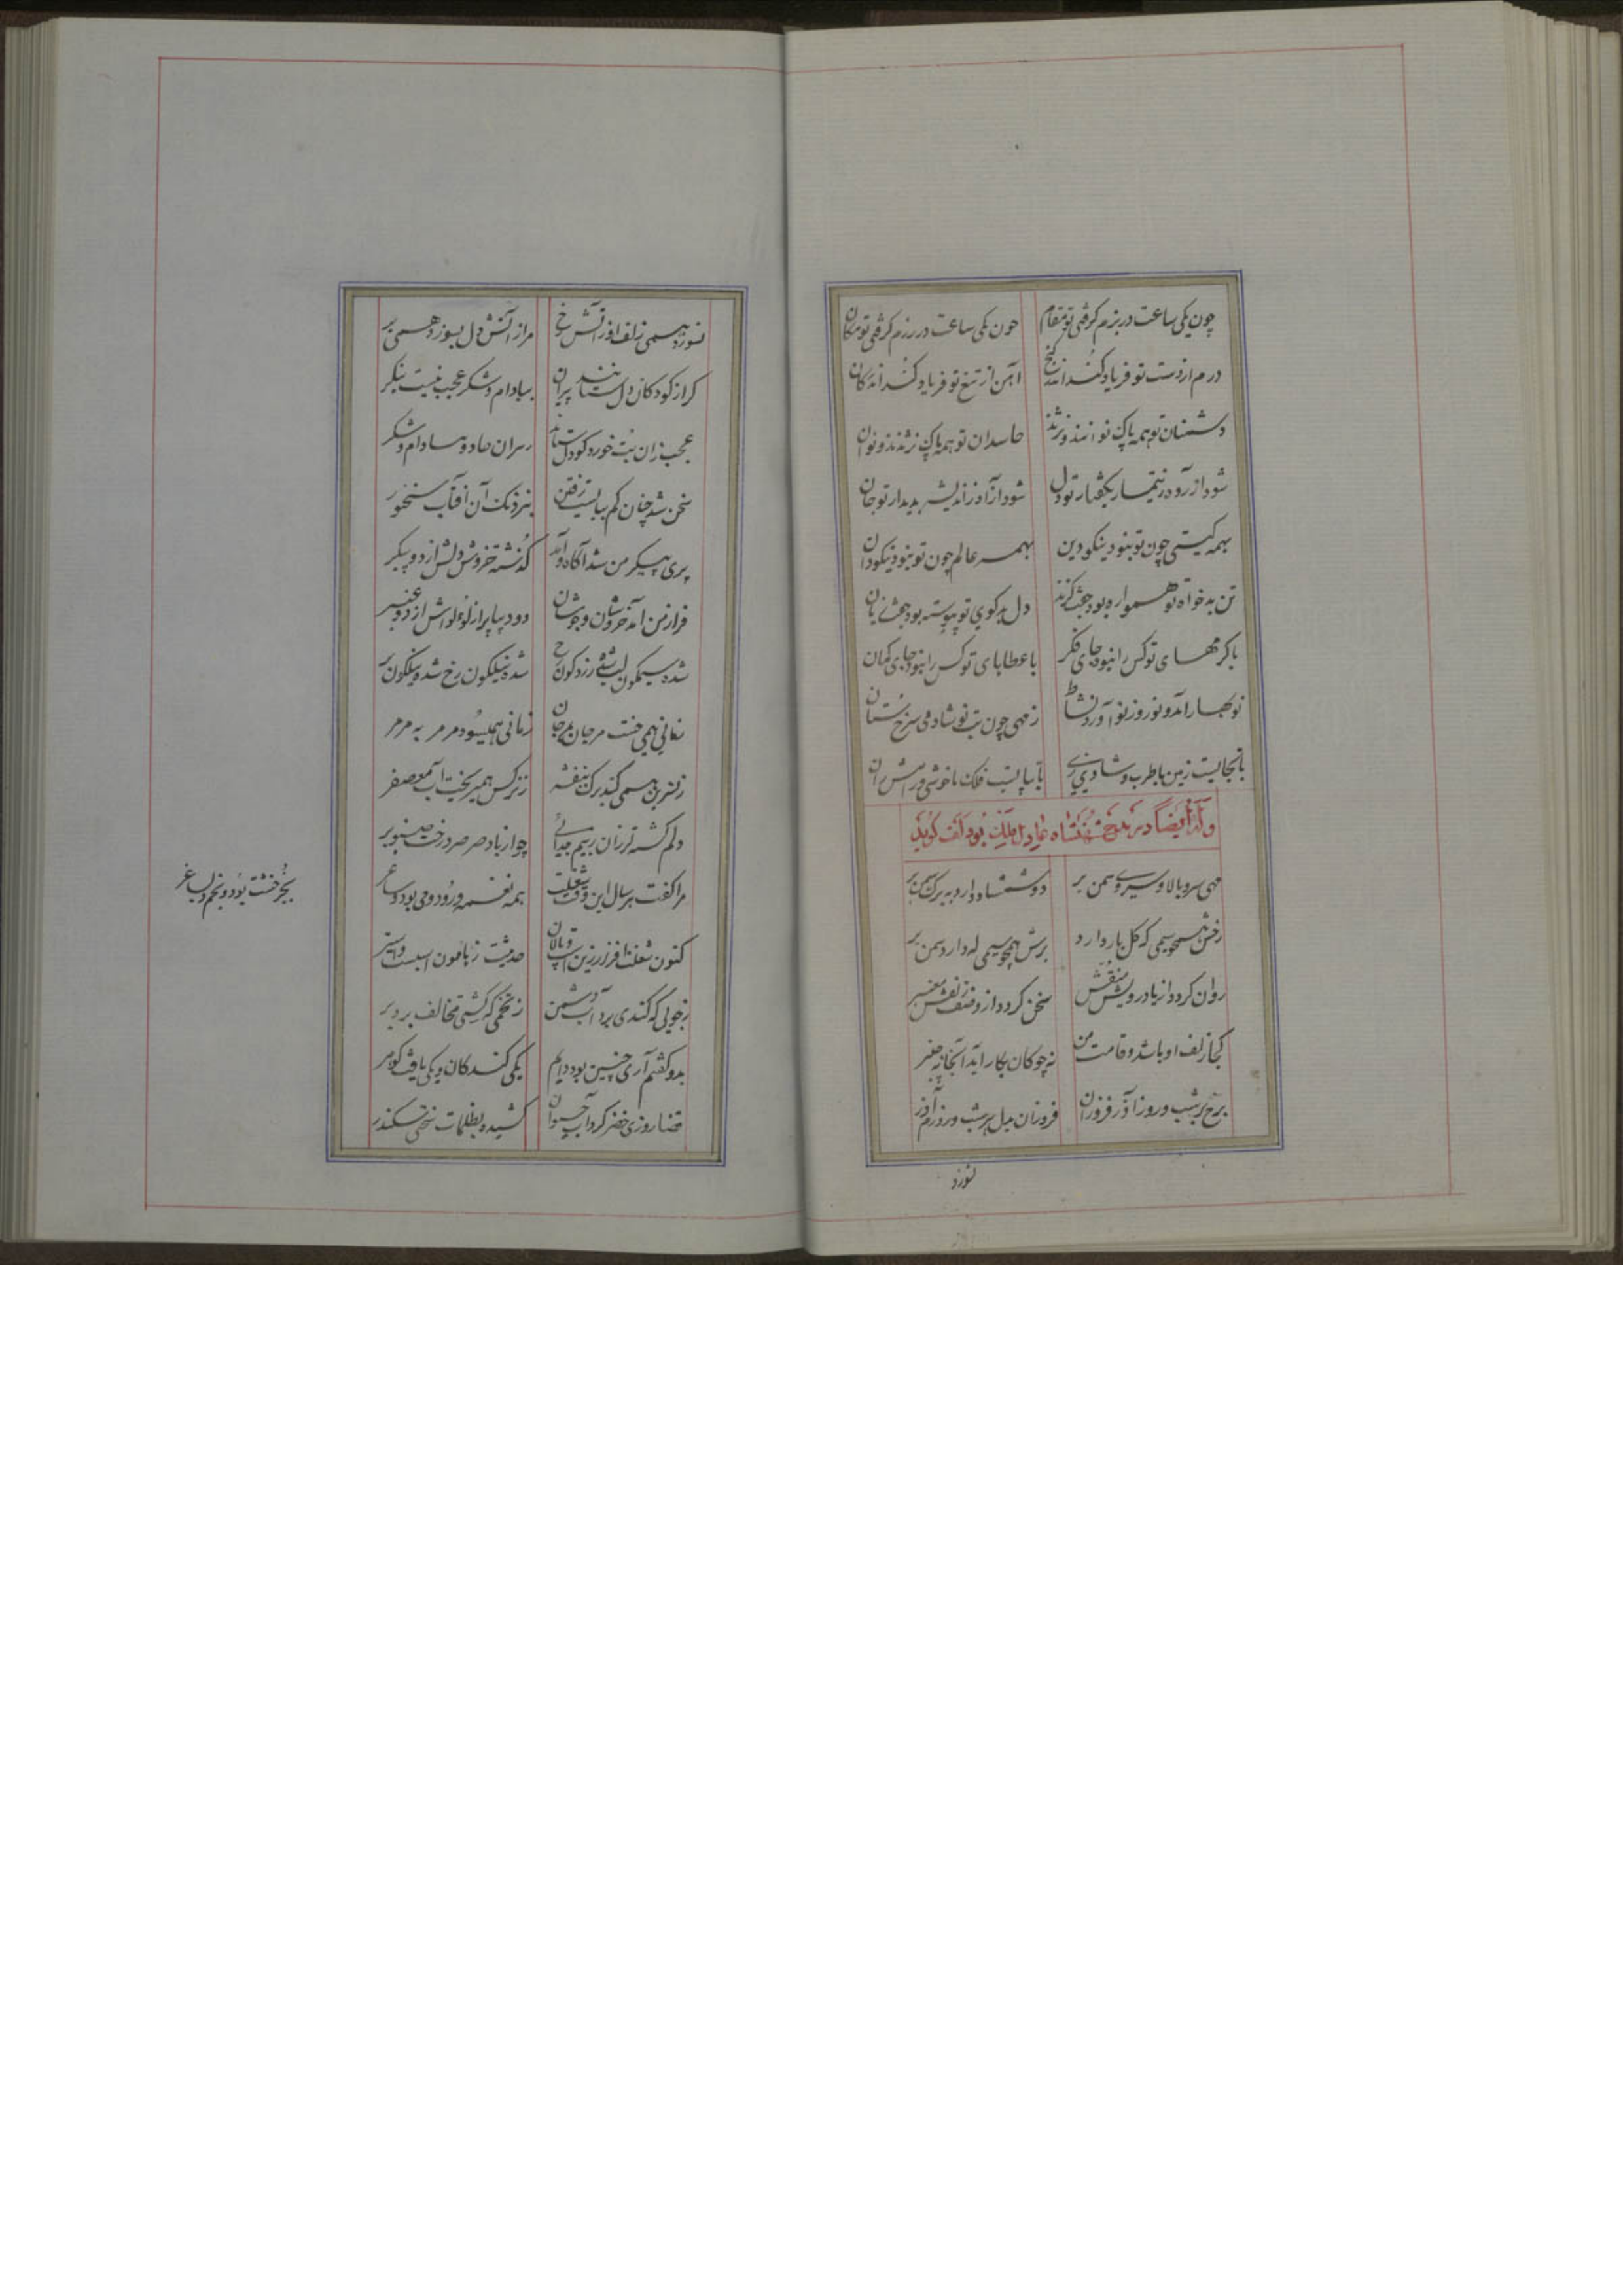 چون یکی ساعت در بزم کرفتی تو مقام چون یکی ساعت در رزم کرفتی تو مکان
درم از دست تو فریاد کند اندر کنج آهن از تیغ تو فریاد کند اندر کان
دشمنان تو همه پاک نوانند و نژند حاسدان تو همه پاک نژندند و نوان
شود آزاده ز تیمار بکفتار تو دل شود آزاد ز اندیشه بدیدار تو جان
بهمه کیتی چون تو نبود نیکودین بهمه عالم چون تو نبود نیکودان
تن بدخواه تو همواره بود جفت کزند دل بدکوی تو پیوسته بود جفت زیان
با کرمهای تو کس را نبود جای فکر با عطاهای تو کس را نبود جای کمان
نوبهار آمد و نوروز نو آورد نشاط ز مهی چون بت نوشاد می سرخ ستان
تا بجایست زمین با طرب و شادی زی تا بپایست فلک با خوشی و رامش ران
وله ایضا در مدح شهنشاه عادل ملک بودلف کوید
مهی سرو بالا و سروی سمن بر دو مشک سیاه دارد به برک سمن بر
رخش همچو سیمی که کل بار دارد برش همچو سیمی که دارد سمن بر
روان کردد از یاد رویش منقش سخن کردد از وصف زلفش معنبر
کجا زلف او باشد و قامت من نه چوکان بکار آید آنجا نه چنبر
برخ بر بشب و روز آذر فروزان فروزان بدل بر شب و روزم آذر
نسوزد
نسوزد همی زلف او زآتش رخ مرا ز آتش دل بسوزد همی بر
کر از کودکان دل ستانند پیران ببادام و شکر عجب نیست بنکر
عجب زان بت خورد کو دل ستاند ز پیران بدو بادام و شکر
سخن شد چنان کم ببایست رفتن بنزدیک آن آفتاب سخنور
پری پیکر من شد آکاه و آمد کذشته خروش دلش از دو پیکر
فراز من آمد خروشان و جوشان دو دیبا پر از لولواش از دو عنبر
شده سیمکون لب شده زردکون رخ شده نیلکون رخ شده نیلکون بر
زمانی همی خست مرجان به مرجان زمانی همیسود مرمر به مرمر
ز نسرین همی کند برک بنفشه ز نرکس همیریخت آب معصفر
دلم کشته لرزان ز بیم جدائی چو از باد صرصر درخت صنوبر
مرا کفت هر سال این وقت شغلت همه نغمه رود و می بود و ساغر
بجز خشت بود و بخم و ساغر
کنون شغلت افزار زین است و پالان حدیثت ز هامون و اسبست و استر
ز خوئی که کندی برد آب دشمن ز تخمی که کشتی مخالف برد بر
بدو کفتم آری چنین بود دایم یکی کند کان و یکی یافت کوهر
قضا روزی خضر کرد آب حیوان کشیده بظلمات سختی سکندر